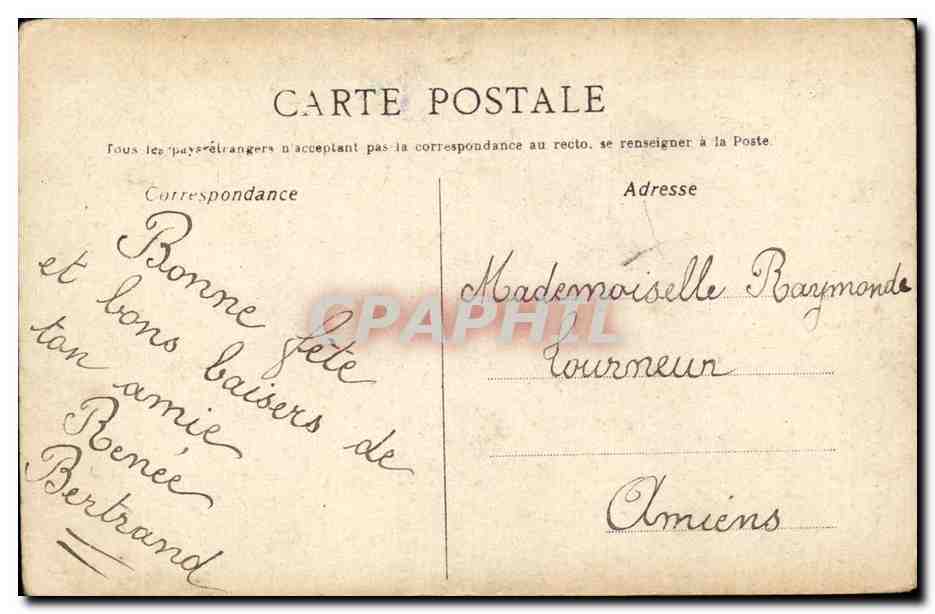 CARTE POSTALE
Tous les pays étrangers n'acceptant pas la correspondance au recto, se renseigner à la Poste.
Correspondance
Bonne fête
et bons baisers de
ton amie
Renée
Bertrand
Adresse
Mademoiselle Raymonde
Tourneur
Amiens
CPAPHIL